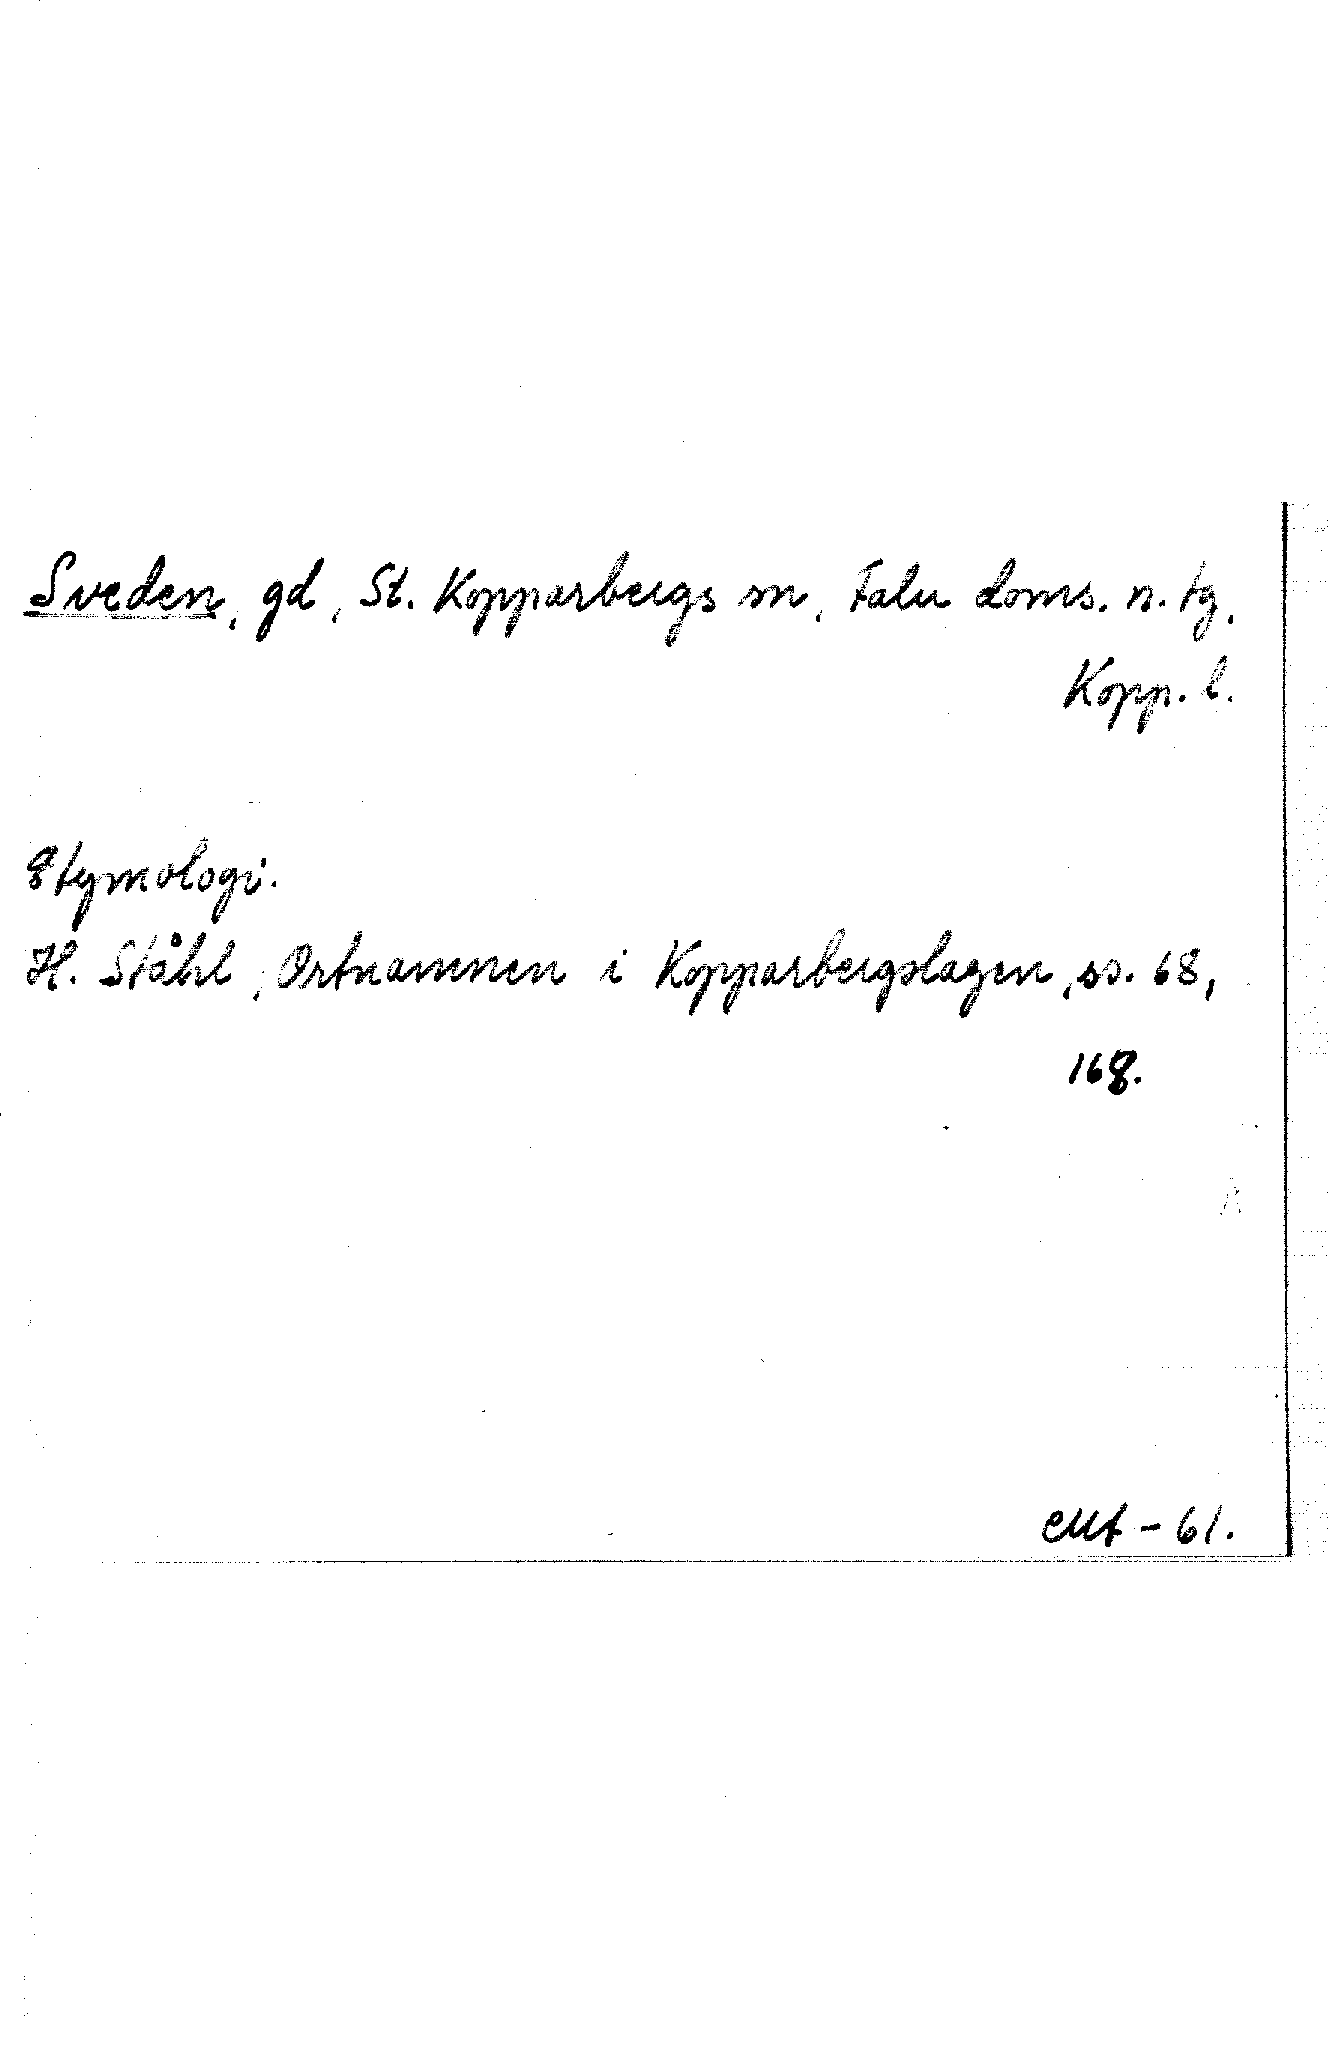 Sveden, gd, St. Kopparbergs sn, Falu doms. n. tg.
Kopp. l.
Etymologi.
H. Ståhl, Ortnamnen i Kopparbergslagen, ss. 68,
168.
EMt - 61.